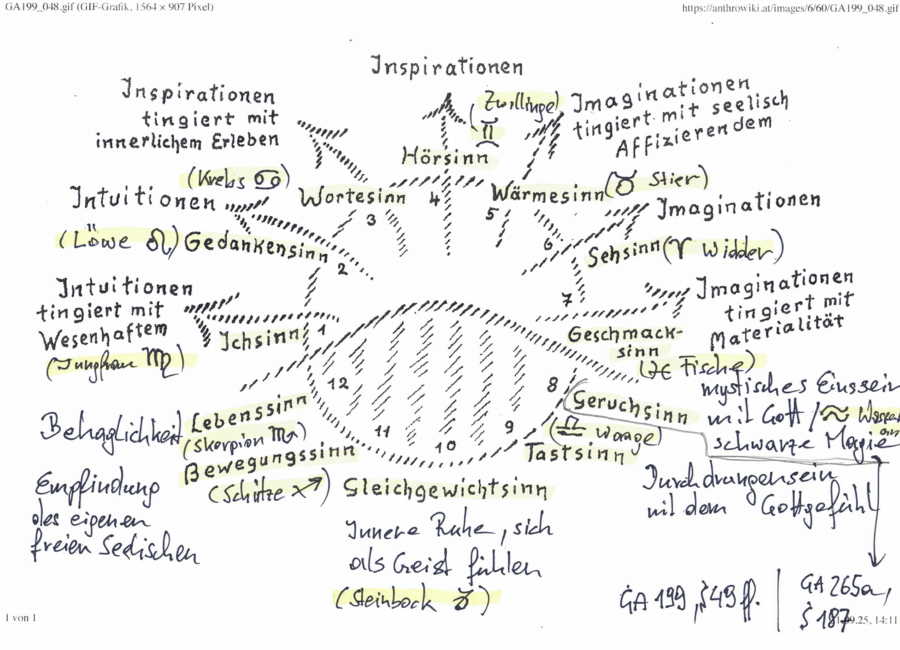 GA199_048.gif (GIF-Grafik, 1564 × 907 Pixel)
https://anthrowiki.at/images/6/60/GA199_048.gif
Inspirationen
Inspirationen
tingiert mit
innerlichem Erleben
(Zwillinge)
♊
Imaginationen
tingiert mit seelisch
Affizierendem
Hörsinn
(Krebs ♋)
Wortesinn
4
Wärmesinn
(♉ Stier)
3
5
Intuitionen
Imaginationen
(Löwe ♌)
Gedankensinn
2
6
Sehsinn
(♈ Widder)
Intuitionen
tingiert mit
Wesenhaftem
Imaginationen
tingiert mit
Materialität
7
Ichsinn
1
Geschmack-
sinn
(Jungfrau ♍)
(♓ Fische)
12
8
mystisches Einssein
mit Gott /
schwarze Magie
Lebenssinn
Geruchsinn
Behaglichkeit
(Skorpion ♏)
11
10
9
(♎ Waage)
Bewegungssinn
Tastsinn
(Schütze ♐)
Gleichgewichtsinn
Empfindung
des eigenen
freien Seelischen
Durchdrungensein
mit dem Gottgefühl
Innere Ruhe, sich
als Geist fühlen
(Steinbock ♑)
GA 199, S49 ff.
GA 265a,
S 187
1 von 1
14:11